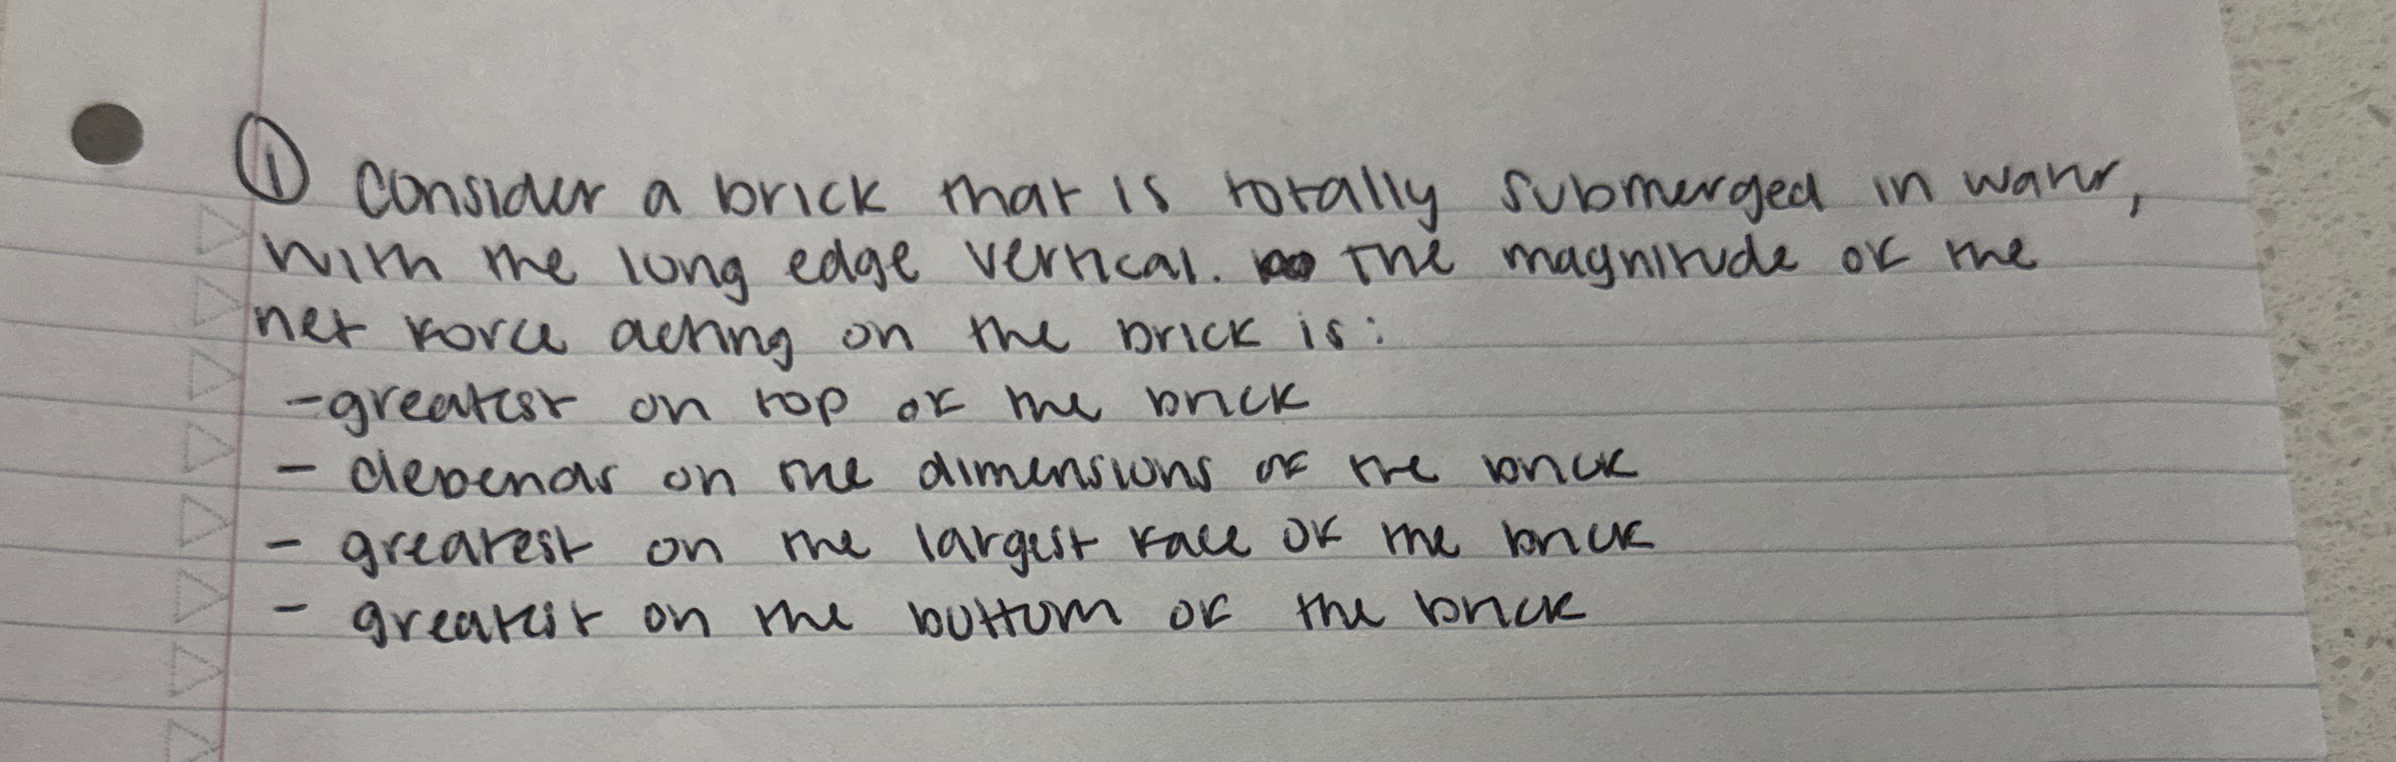 ① Consider a brick that is totally submerged in water,
with the long edge vertical. The magnitude of the
net force acting on the brick is:
- greatest on top of the brick
- depends on the dimensions of the brick
- greatest on the largest face of the brick
- greatest on the bottom of the brick